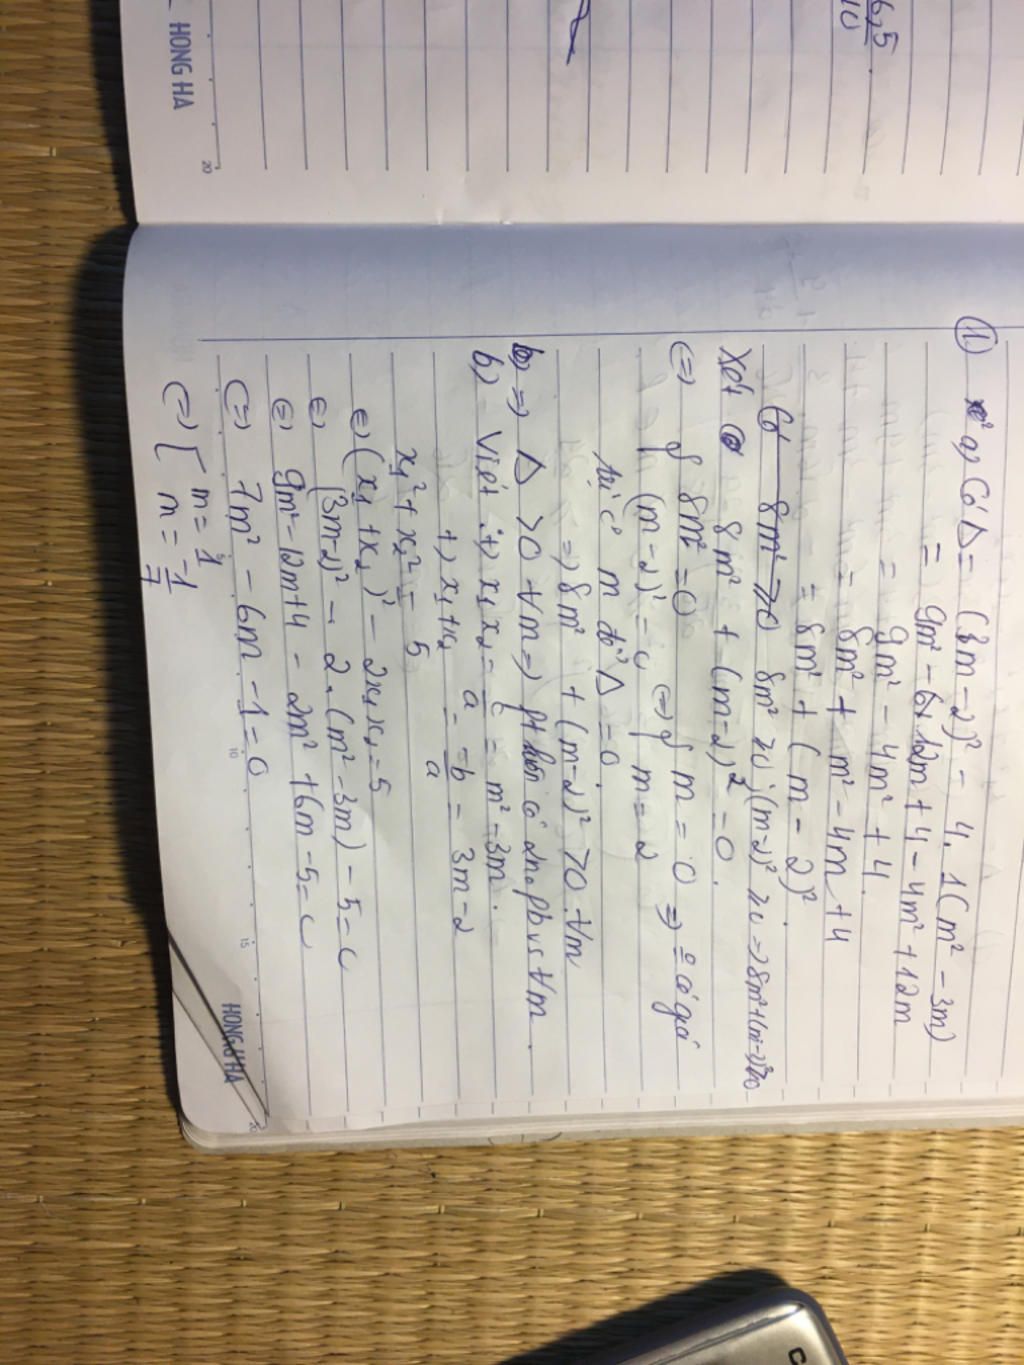 6,5
10
HONG HA
20
① a, Có Δ = (3m-2)² - 4.1(m² - 3m)
= 9m² - 12m + 4 - 4m² + 12m
= 9m² - 4m² + 4
= 8m² + m² - 4m + 4
= 8m² + (m-2)².
Có 8m² ≥ 0 8m² ≥ 0; (m-2)² ≥ 0 => 8m² + (m-2)² ≥ 0
Xét 8m² + (m-2)² = 0.
<=> { 8m² = 0 <=> { m = 0 => có giá
(m-2)² = 0 m = 2
trị m để Δ = 0.
=> 8m² + (m-2)² > 0 ∀m
=> Δ > 0 ∀m => pt luôn có 2 no pb vs ∀m.
b) Viét: +) x₁x₂ = c/a = m² - 3m.
+) x₁+x₂ = -b/a = 3m-2
x₁² + x₂² = 5
<=> (x₁ + x₂)² - 2x₁x₂ = 5
<=> (3m-2)² - 2.(m² - 3m) - 5 = 0
<=> 9m² - 12m + 4 - 2m² + 6m - 5 = 0
<=> 7m² - 6m - 1 = 0
<=> [ m = 1
m = -1/7
10
15
20
HONG HA